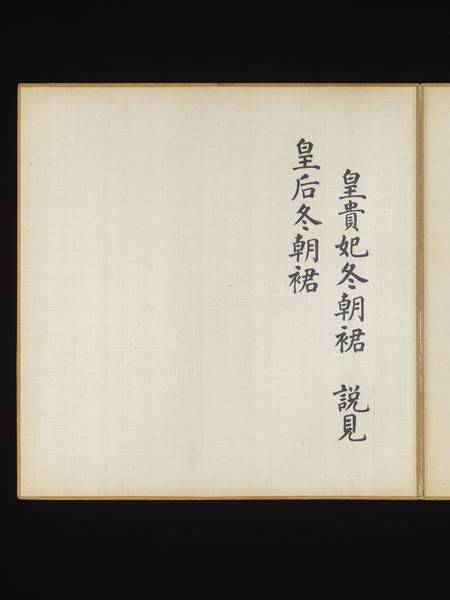 皇貴妃冬朝裙　説見
皇后冬朝裙